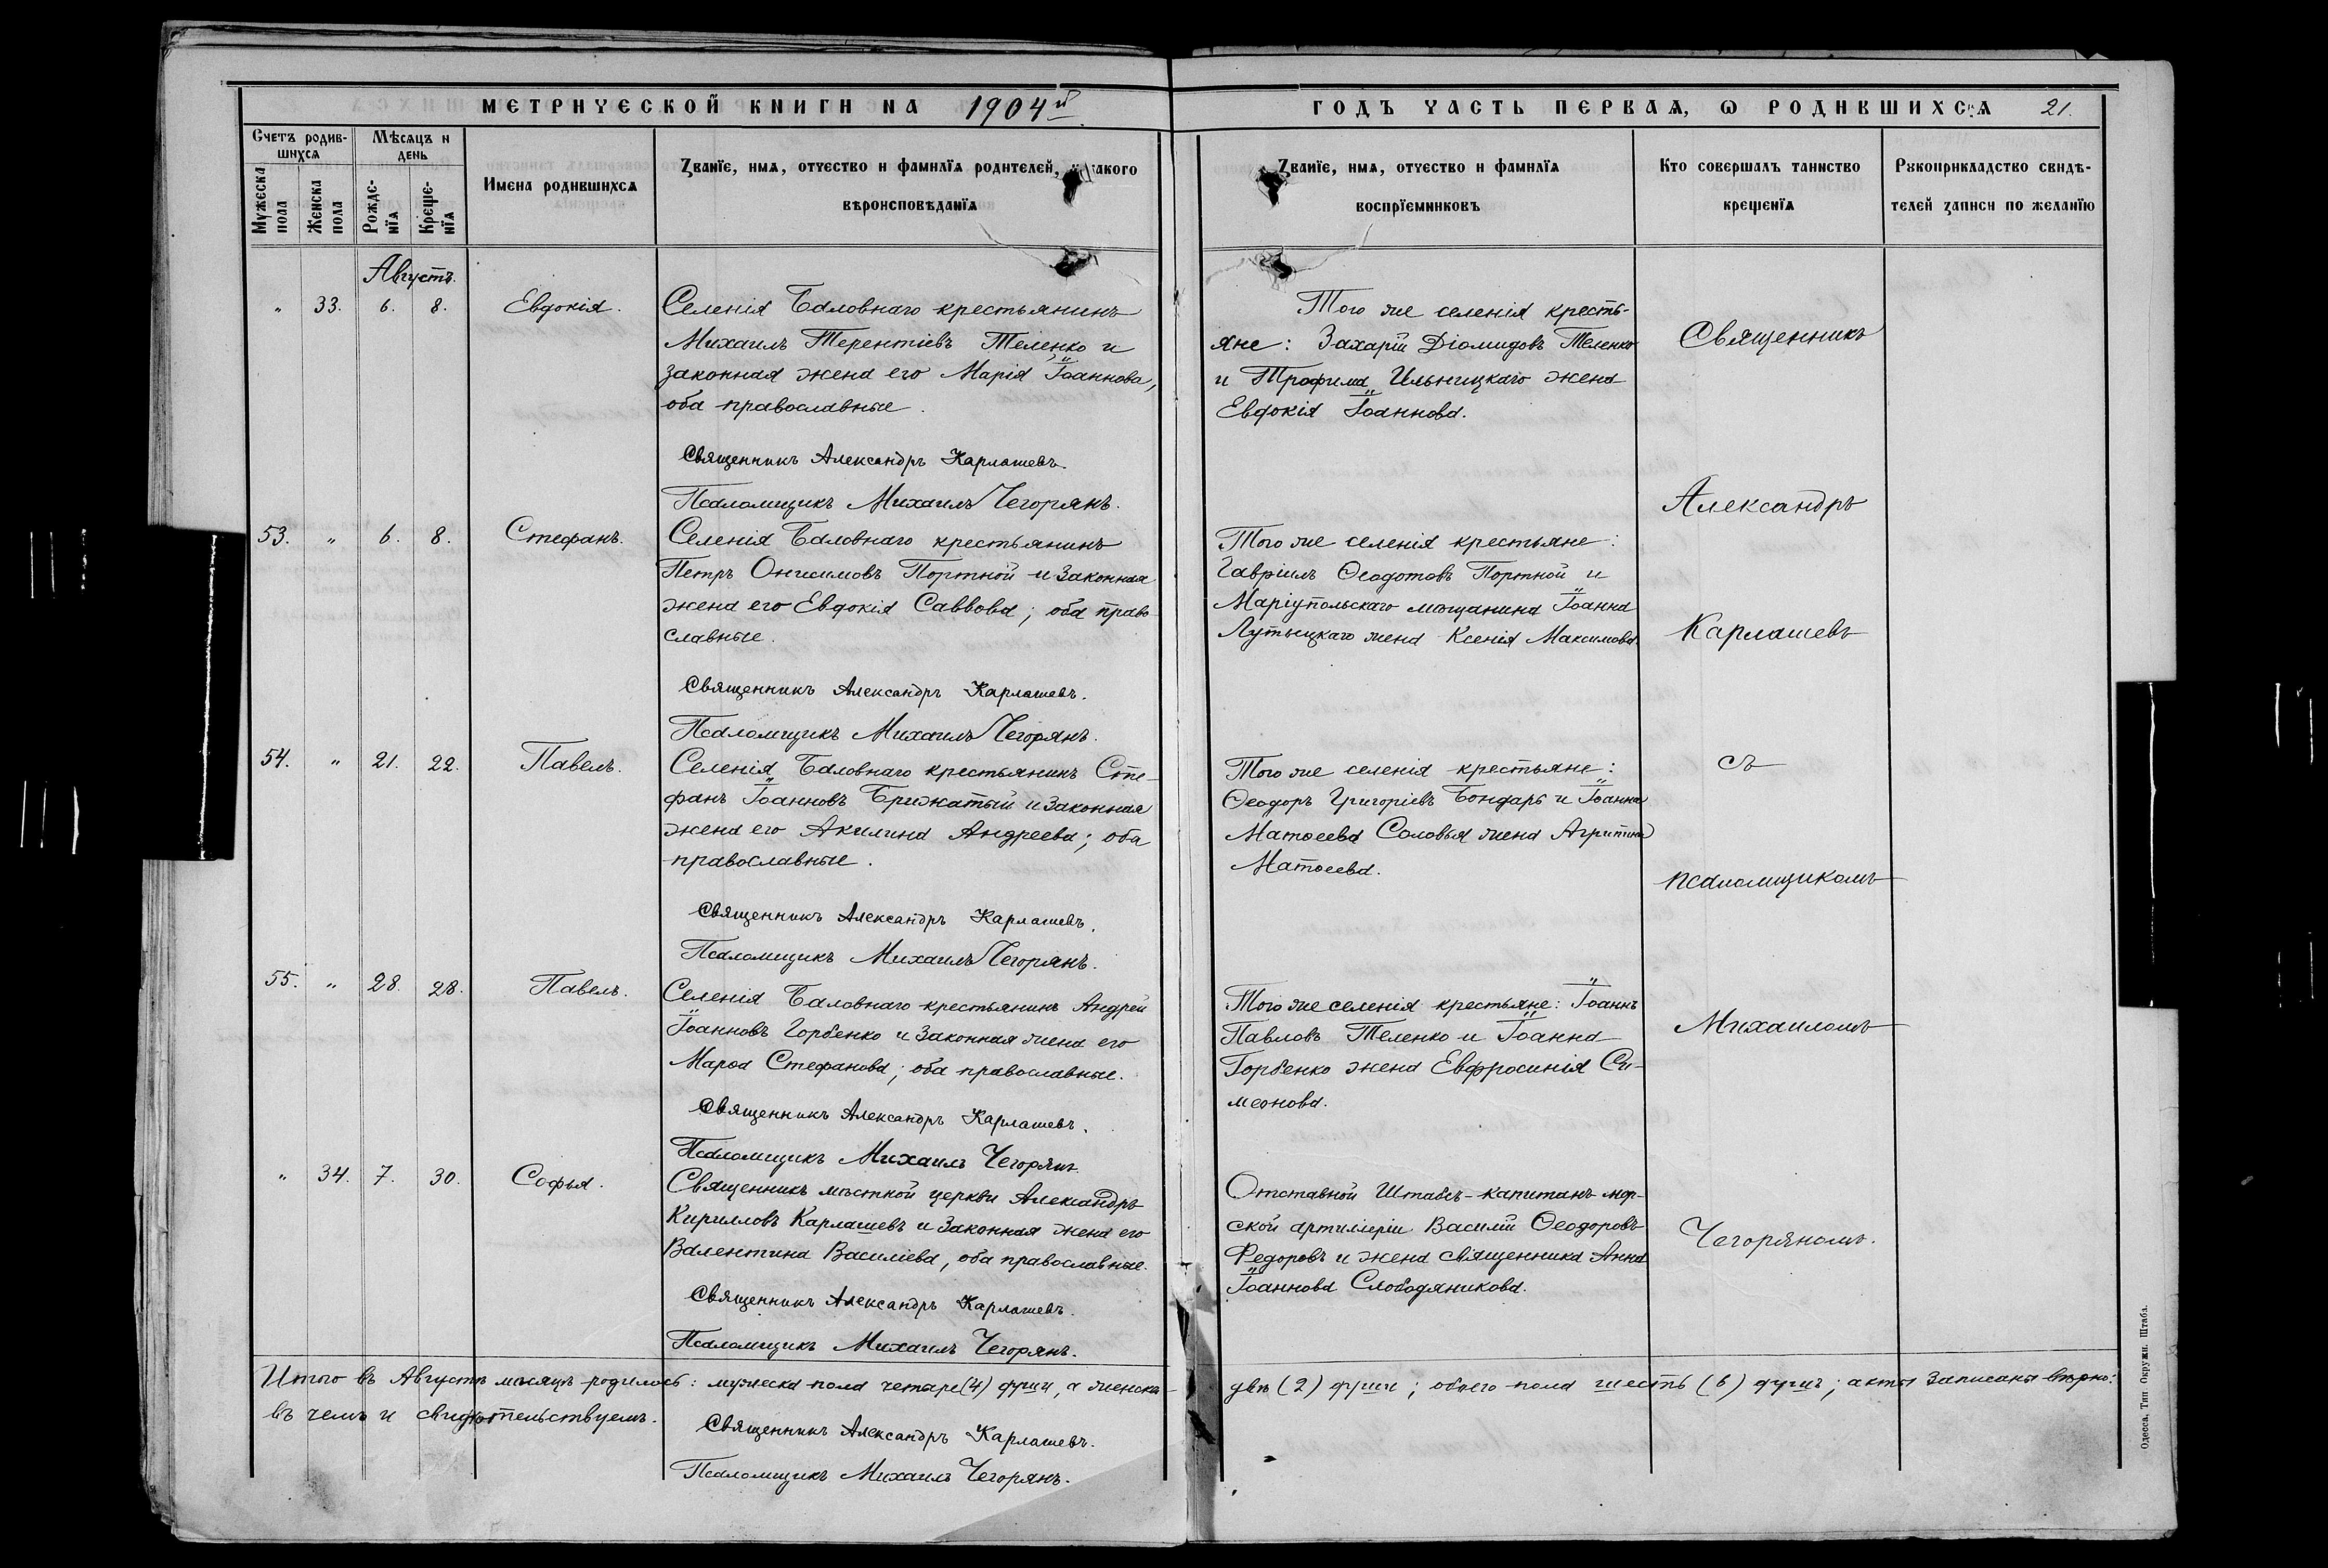 МЕТРИЧЕСКОЙ КНИГИ НА 1904й
ГОДЪ ЧАСТЬ ПЕРВАЯ, Ѡ РОДИВШИХСЯ 21.
Счетъ родив-
шихся
Мѣсяцъ и
день
Мужеска
пола
Женска
пола
Рожде-
нїя
Креще-
нїя
Имена родившихся
Званїе, имя, отчество и фамилїя родителей, и какого
вѣроисповѣданїя
Званїе, имя, отчество и фамилїя
воспрїемниковъ
Кто совершалъ таинство
крещенїя
Рукоприкладство свидѣ-
телей записи по желанїю
Августъ.
„ 33. 6. 8. Евдокія.
Селенія Баловнаго крестьянинъ
Михаилъ Терентіевъ Теленко и
законная жена его Марія Іоаннова,
оба православные.
Священникъ Александръ Карлашевъ.
Псаломщикъ Михаилъ Чегорянъ.
Того же селенія кресть-
яне: Захарій Діомидовъ Теленко
и Трофима Ильницкаго жена
Евдокія Іоаннова.
53. „ 6. 8. Стефанъ.
Селенія Баловнаго крестьянинъ
Петръ Онисимовъ Портной и законная
жена его Евдокія Саввова; оба право-
славные.
Священникъ Александръ Карлашевъ.
Псаломщикъ Михаилъ Чегорянъ.
Того же селенія крестьяне:
Гавріилъ Ѳеодотовъ Портной и
Маріупольскаго мѣщанина Іоанна
Лутыцкаго жена Ксенія Максимова.
54. „ 21. 22. Павелъ.
Селенія Баловнаго крестьянинъ Сте-
фанъ Іоанновъ Брижатый и законная
жена его Акилина Андреева; оба
православные.
Священникъ Александръ Карлашевъ.
Псаломщикъ Михаилъ Чегорянъ.
Того же селенія крестьяне:
Ѳеодоръ Григоріевъ Бондарь и Іоанна
Матѳеева Соловья жена Агрипина
Матѳеева.
55. „ 28. 28. Павелъ.
Селенія Баловнаго крестьянинъ Андрей
Іоанновъ Горбенко и законная жена его
Марѳа Стефанова; оба православные.
Священникъ Александръ Карлашевъ.
Псаломщикъ Михаилъ Чегорянъ
Того же селенія крестьяне: Іоаннъ
Павловъ Теленко и Іоанна
Горбенко жена Евфросинія Си-
меонова.
„ 34. 7. 30. Софья.
Священникъ мѣстной церкви Александръ
Кирилловъ Карлашевъ и законная жена его
Валентина Василіева, оба православные.
Священникъ Александръ Карлашевъ.
Псаломщикъ Михаилъ Чегорянъ.
Отставной Штабсъ-капитанъ мор-
ской артиллеріи Василій Ѳеодоровъ
Федоровъ и жена священника Анна
Іоаннова Слободяникова.
Священникъ
Александръ
Карлашевъ
съ
псаломщикомъ
Михаиломъ
Чегоряномъ.
Итого въ Августѣ мѣсяцѣ родилось: мужеска пола четыре (4) души, а женска-
двѣ (2) души; обоего пола шесть (6) душъ; акты записаны вѣрно:
въ чемъ и свидѣтельствуемъ.
Священникъ Александръ Карлашевъ.
Псаломщикъ Михаилъ Чегорянъ.
Одесса, Тип. Окружн. Штаба.